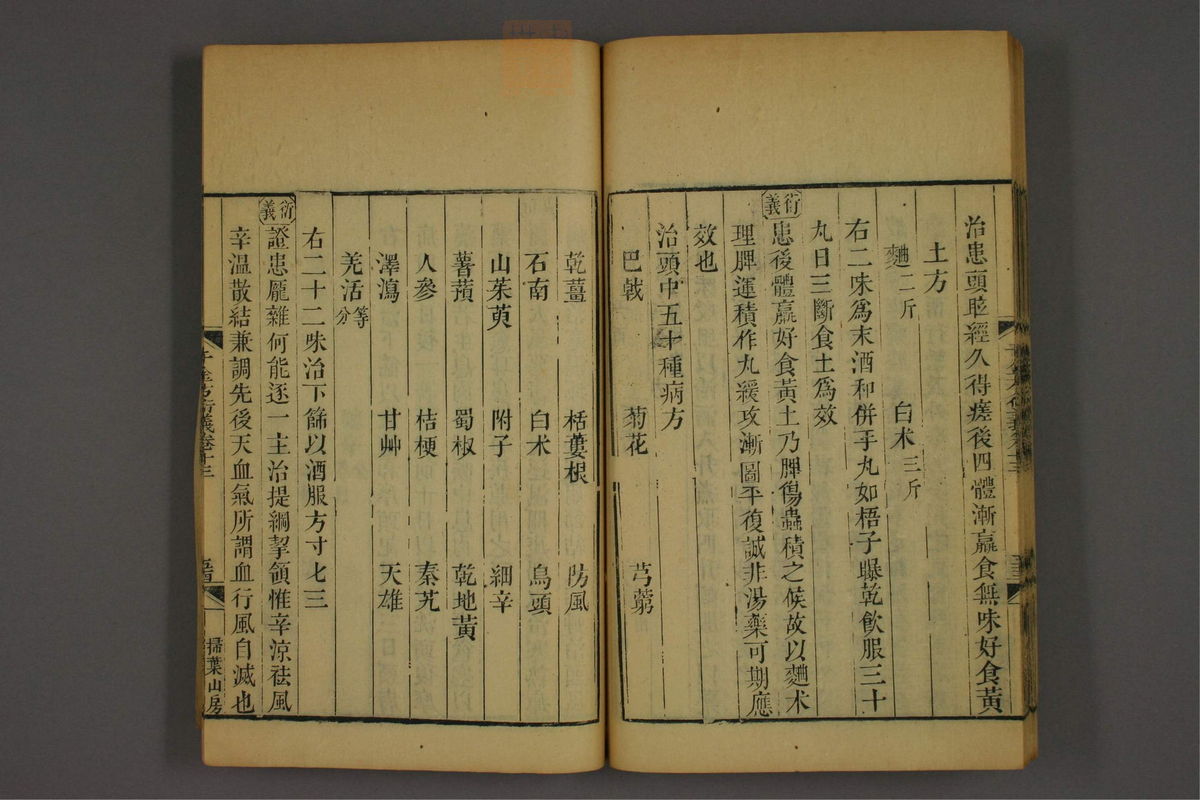 治患頭眩經久得瘥後四體漸羸食無味好食黃
土方
麯二斤 白术三斤
右二味爲末酒和併手丸如梧子曝乾飲服三十
丸日三斷食土爲效
衍義
患後體羸好食黃土乃脾傷蟲積之候故以麯术
理脾運積作丸緩攻漸圖平復誠非湯藥可期應
效也
治頭中五十種病方
巴戟 菊花 芎藭
乾薑 栝蔞根 防風
石南 白术 烏頭
山茱萸 附子 細辛
薯蕷 蜀椒 乾地黃
人參 桔梗 秦艽
澤瀉 甘艸 天雄
羌活等分
右二十二味治下篩以酒服方寸七三
衍義
證患龐雜何能逐一主治提綱挈領惟辛涼祛風
辛溫散結兼調先後天血氣所謂血行風自滅也
千金方衍義卷十三
掃葉山房